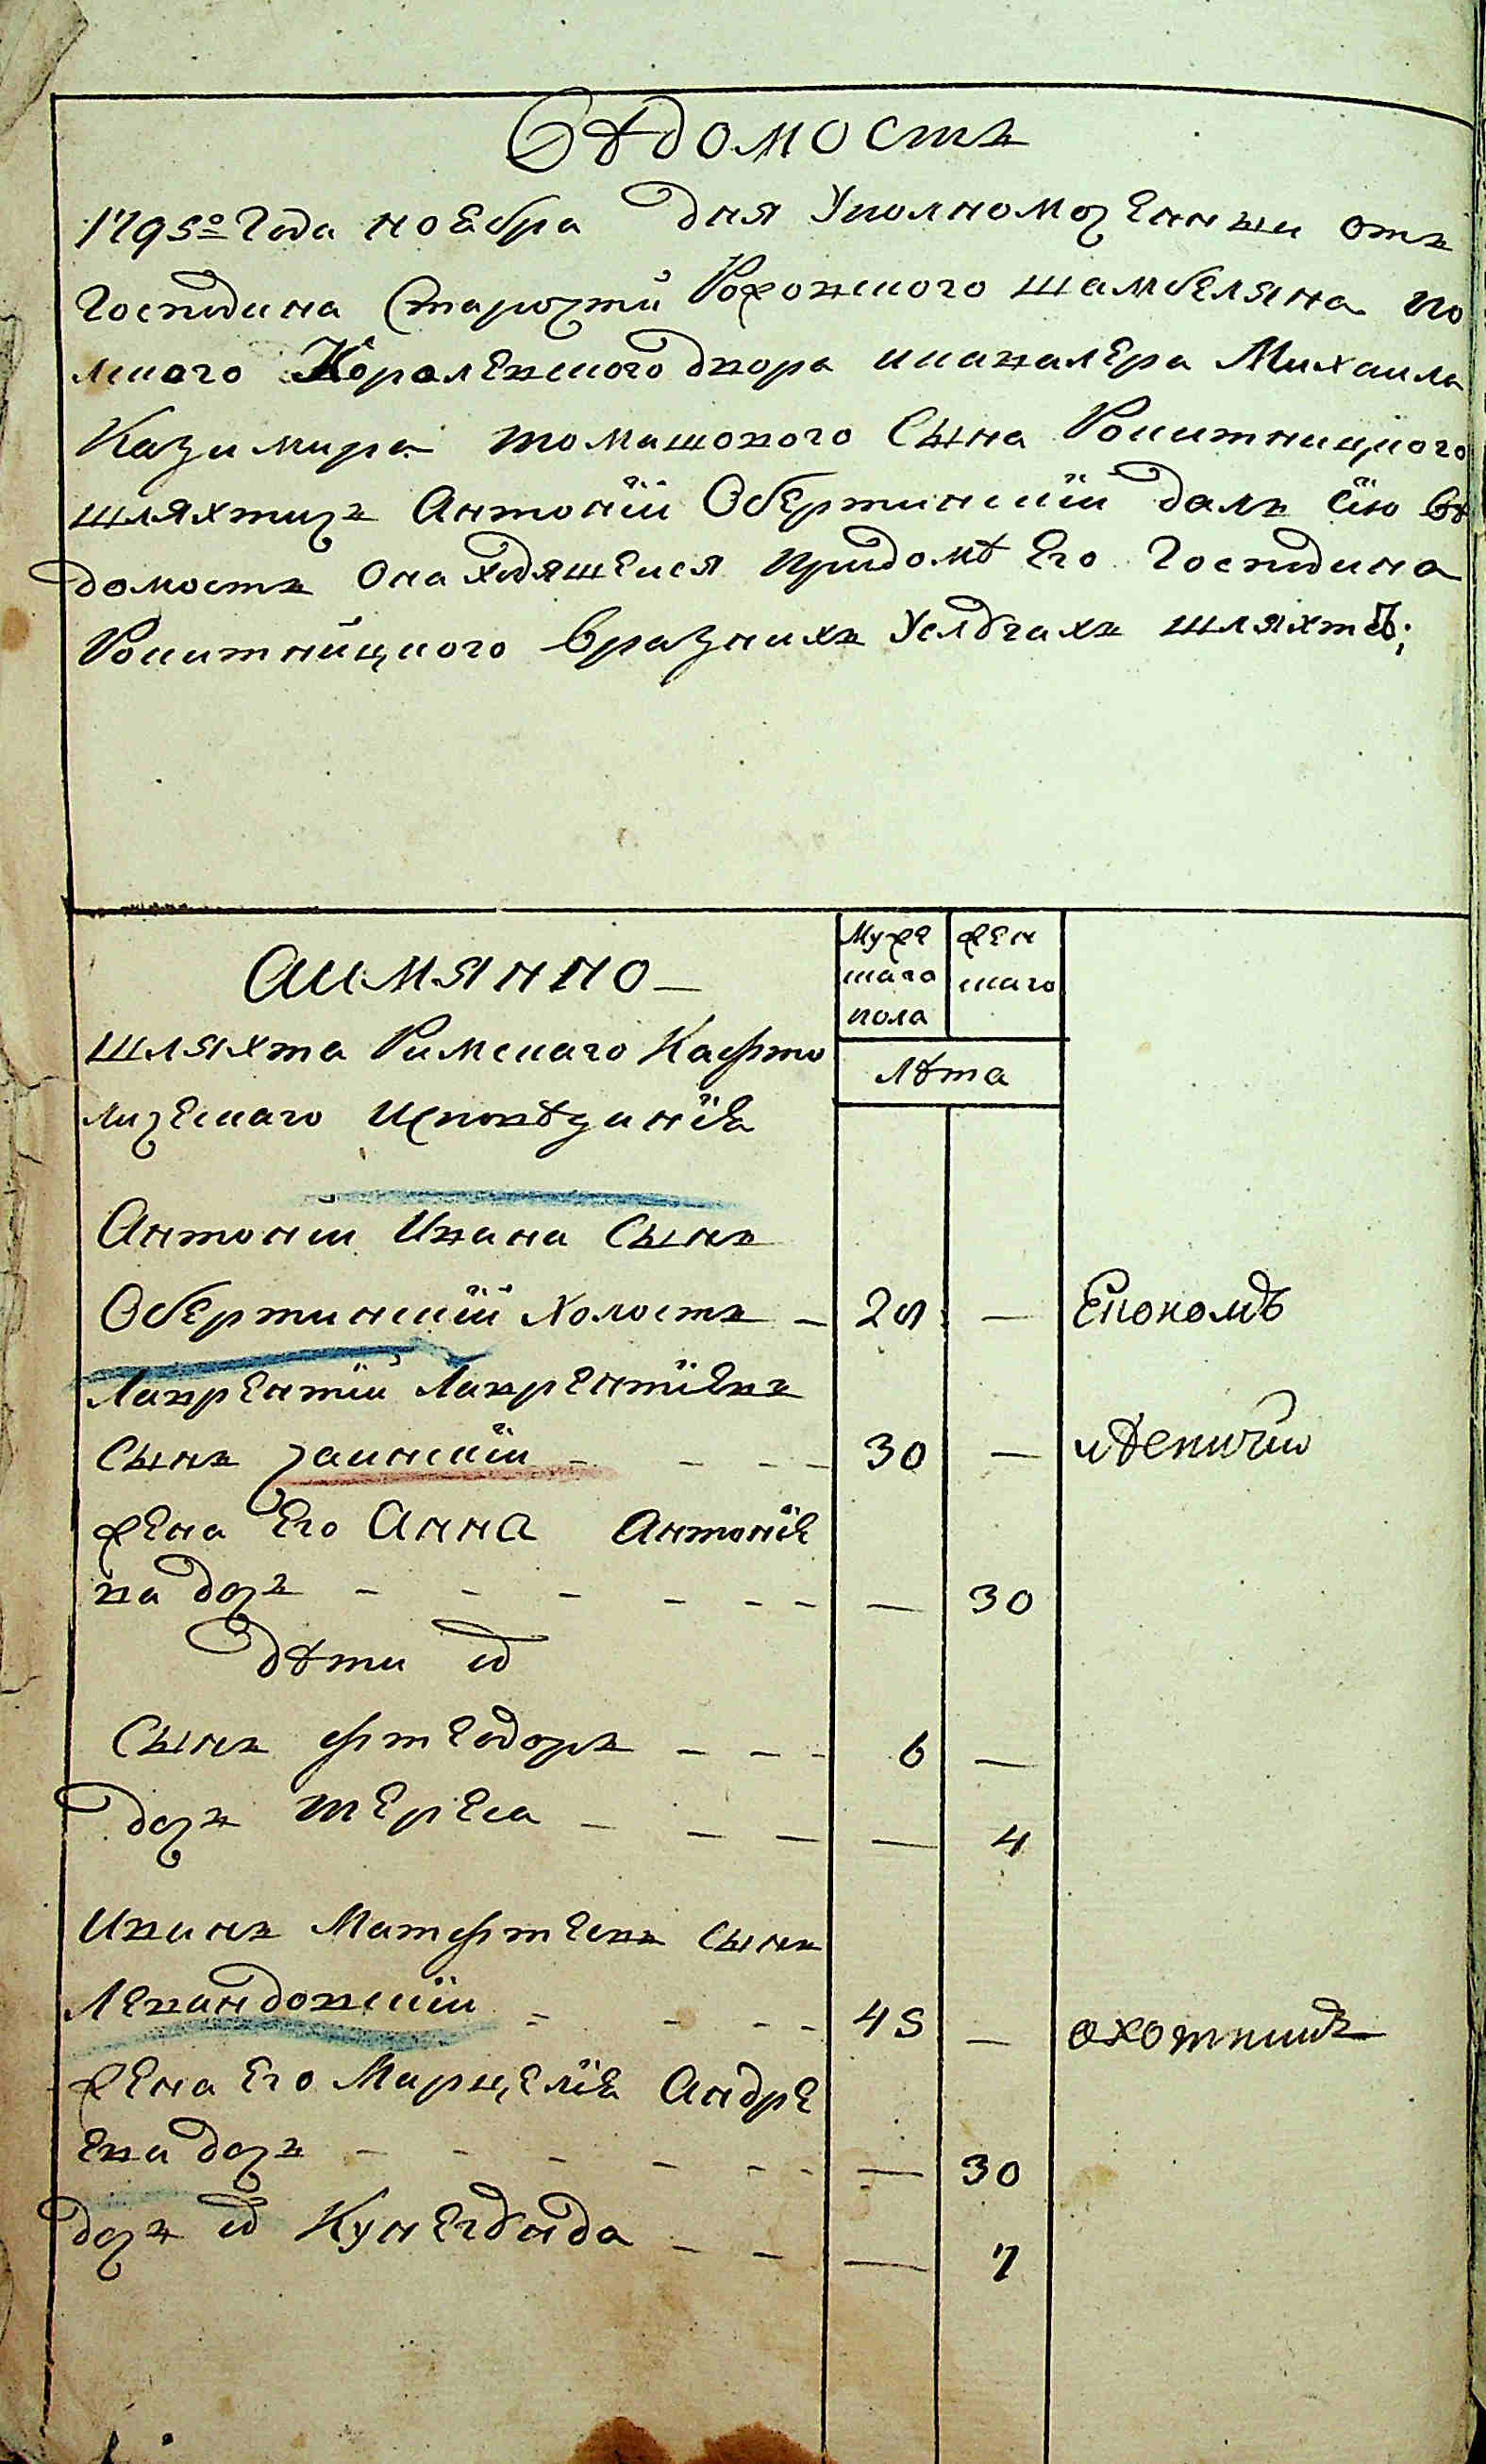 Вѣдомостъ
1795º Года ноебра дня Уполномоченныи отъ
Господина Старосты Рожовского шамбеляна по
лского Королевского двора икавалера Михаила
Казимира томашового Сына Рокитницкого
шляхтичъ Антонїй Обертинскїй далъ сїю вѣ
домостъ Онаходящейся придомѣ Его Господина
Рокитницкого вразнихъ Услугахъ шляхтѣ;
Аимянно —
Муже скаго пола
жен скаго
лѣта
шляхта Римскаго Кафто
лическаго Исповѣдинїя
Антонїй Ивана Сынъ
Обертинскїй Холостъ — 28 — Економъ
Лаврентїй Лаврентїевъ
Сынъ заинскїй - - - - 30 — лѣсничїй
жена Его Анна Антонїе
ва дочъ - - - - - - — 30
дѣти их
Сынъ фтеодоръ - - - 6 —
дочъ тереса - - - — 4
Иванъ Матфтеевъ сынъ
Левандовскїй - - - - 45 — охотникъ
жена Его Марцелїя Андре
ева дочъ - - - - - - — 30
дочъ их Кунегунда - - — 7